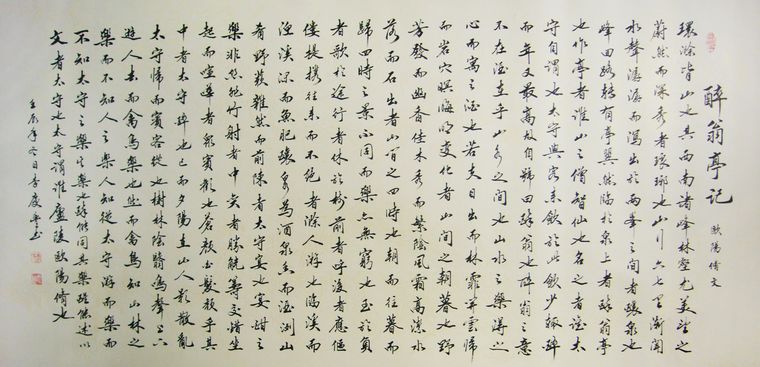 醉翁亭记
欧陽脩文
環滁皆山也其西南諸峰林壑尤美望之
蔚然而深秀者琅琊也山行六七里漸聞
水聲潺潺而瀉出於兩峯之間者釀泉也
峰回路轉有亭翼然臨於泉上者醉翁亭
也作亭者誰山之僧智仙也名之者誰太
守自謂也太守與客來飲於此飲少輒醉
而年又最高故自號曰醉翁也醉翁之意
不在酒在乎山水之間也山水之樂得之
心而寓之酒也若夫日出而林霏開雲歸
而岩穴暝晦明變化者山間之朝暮也野
芳發而幽香佳木秀而繁陰風霜高潔水
落而石出者山間之四時也朝而往暮而
歸四時之景不同而樂亦無窮也至於負
者歌於途行者休於樹前者呼後者應傴
僂提攜往來而不絕者滁人游也臨溪而
漁溪深而魚肥釀泉為酒泉香而酒洌山
肴野蔌雜然而前陳者太守宴也宴酣之
樂非絲非竹射者中弈者勝觥籌交錯坐
起而諠譁者衆賓歡也蒼顏白髮頹乎其
中者太守醉也已而夕陽在山人影散亂
太守歸而賓客從也樹林陰翳鳴聲上下
遊人去而禽鳥樂也然而禽鳥知山林之
樂而不知人之樂人知從太守游而樂而
不知太守之樂其樂也醉能同其樂醒能述以
文者太守也太守謂誰廬陵歐陽脩也
壬辰年冬日李慶